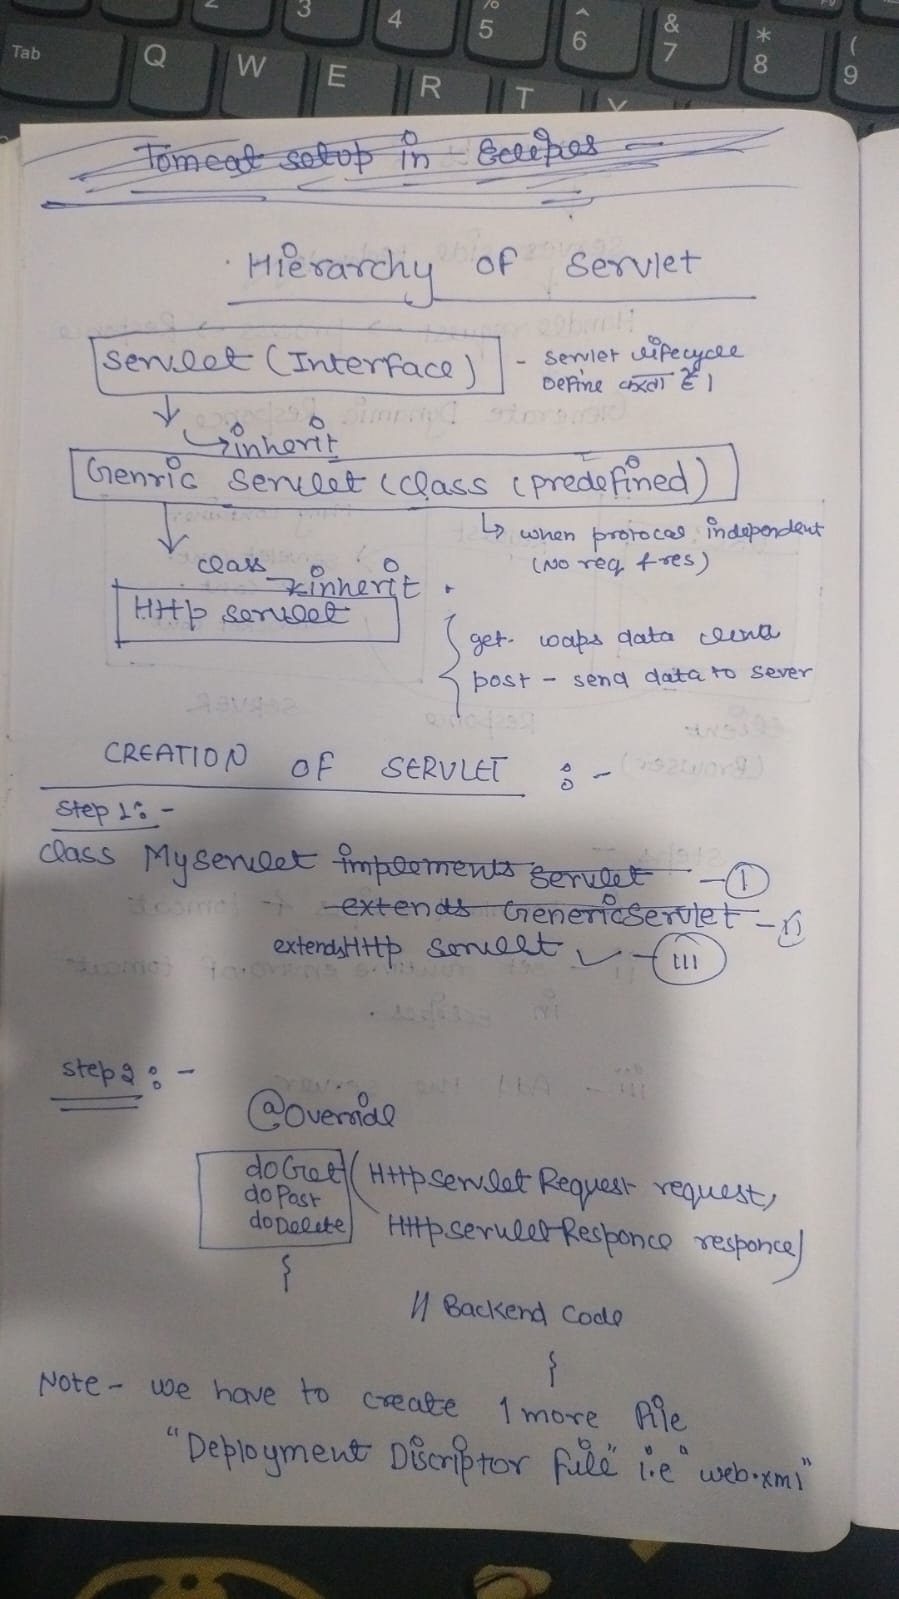 Tab Q W E R T Y
3 4 % 5 ^ 6 & 7 * 8 ( 9
Tomcat setup in Eclipes
Hierarchy of Servlet
Servlet (Interface) - Servlet lifecycle
Define करता है।
↳ inherit
Genric Servlet (class (predefined)
↳ when protocal independent
(No req & res)
class → inherit
HTTp servlet
get - waps data
post - send data to sever
CREATION OF SERVLET :-
Step 1:-
Class MyServlet implements servlet - I
extends GenericServlet - II
extends HTTp servlet ✓ - III
Step 2:-
@Override
doGet (HTTp Servlet Request request,
doPost
doDelete HTTp servlet Responce responce)
{
// Backend Code
}
Note - we have to create 1 more file
"Deployment Discriptor file" i.e "web.xml"